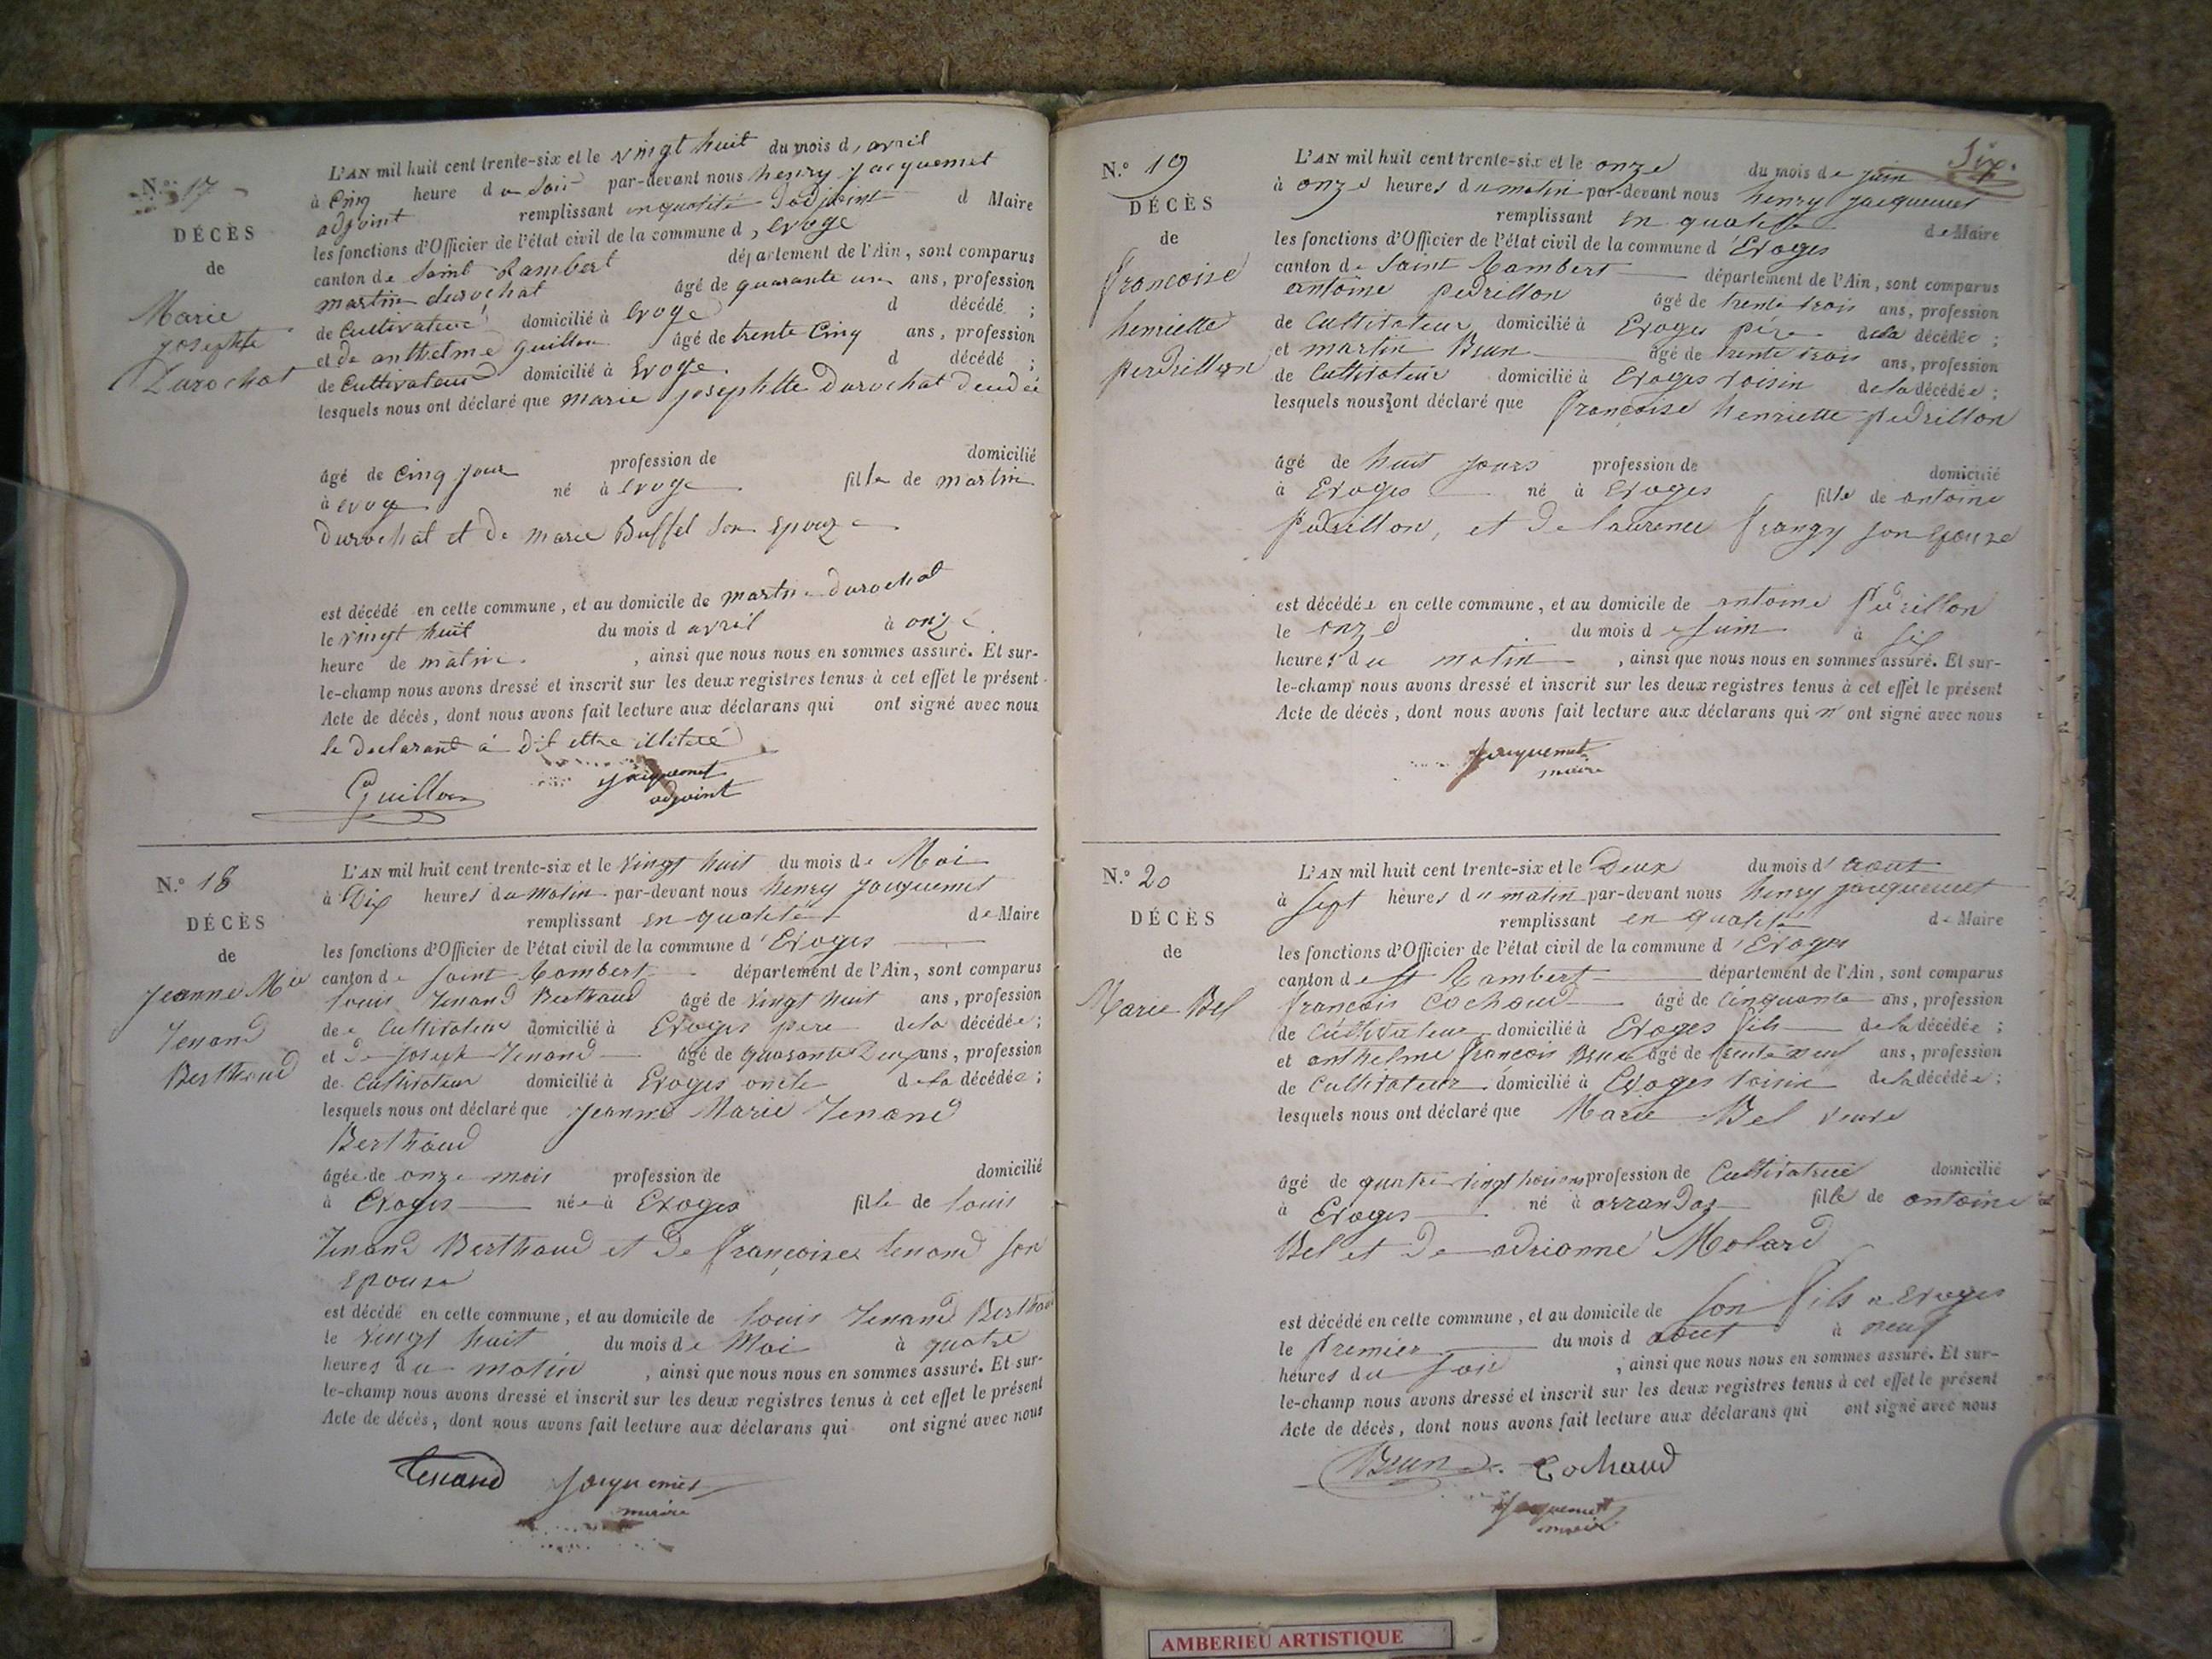 N.º 17
DÉCÈS
de
Marie
josephte
Durochat
L'AN mil huit cent trente-six et le vingt huit du mois d, avril
à Cinq heure du soir par-devant nous henry jacquemet
adjoint remplissant en qualité d'adjoint d Maire
les fonctions d'Officier de l'état civil de la commune d, Evoge
canton de Saint Rambert département de l'Ain, sont comparus
martin durochat âgé de quarante un ans, profession
de Cultivateur domicilié à Evoge d décédé ;
et de anthelme guillon âgé de trente Cinq ans, profession
de Cultivateur domicilié à Evoge d décédé ;
lesquels nous ont déclaré que marie josephtte Durochat
âgé de Cinq jour profession de domicilié
à evoge né à evoge fille de martin
Durochat et de marie Buffet son epouze
est décédé en cette commune, et au domicile de martin durochat
le vingt huit du mois d avril à onze
heure de matin , ainsi que nous nous en sommes assuré. Et sur-
le-champ nous avons dressé et inscrit sur les deux registres tenus à cet effet le présent
Acte de décès, dont nous avons fait lecture aux déclarans qui ont signé avec nous
le declarant à dit ettre illiteré
Guillon jacquemet
adjoint
N.º 18
DÉCÈS
de
Jeanne Mie
Tenand
Berthaud
L'AN mil huit cent trente-six et le vingt huit du mois de Mai
à Dix heures du matin par-devant nous henry jacquemet
remplissant en qualité de Maire
les fonctions d'Officier de l'état civil de la commune d'Evoges
canton de saint Rambert département de l'Ain, sont comparus
louis Tenand Berthaud âgé de vingt huit ans, profession
de Cultivateur domicilié à Evoges pere de la décédée ;
et de joseph Tenand âgé de quarante Deux ans, profession
de Cultivateur domicilié à Evoges oncle de la décédée ;
lesquels nous ont déclaré que Jeanne Marie Tenand
Berthaud
âgée de onze mois profession de domicilié
à Evoges née à Evoges fille de louis
Tenand Berthaud et de françoise tenand son
epouse
est décédé en cette commune, et au domicile de louis Tenand Berthaud
le vingt huit du mois de Mai à quatre
heures du matin , ainsi que nous nous en sommes assuré. Et sur-
le-champ nous avons dressé et inscrit sur les deux registres tenus à cet effet le présent
Acte de décès, dont nous avons fait lecture aux déclarans qui ont signé avec nous
tenand jacquemet
maire
Six.
N.º 19
DÉCÈS
de
francoise
henriette
perdrillon
L'AN mil huit cent trente-six et le onze du mois de juin
à onze heures du matin par-devant nous henry jacquemet
remplissant en qualité de Maire
les fonctions d'Officier de l'état civil de la commune d'Evoges
canton de saint Rambert département de l'Ain, sont comparus
antoine pedrillon âgé de trente trois ans, profession
de Cultivateur domicilié à Evoges père de la décédée ;
et martin Brun âgé de trente trois ans, profession
de Cultivateur domicilié à Evoges voisin de la décédée ;
lesquels nous ont déclaré que françoise henriette pedrillon
âgé de huit jours profession de domicilié
à Evoges né à Evoges fille de antoine
pedrillon, et de laurence frangy son epouze
est décédée en cette commune, et au domicile de antoine pedrillon
le onze du mois de juin à six
heures du matin , ainsi que nous nous en sommes assuré. Et sur-
le-champ nous avons dressé et inscrit sur les deux registres tenus à cet effet le présent
Acte de décès, dont nous avons fait lecture aux déclarans qui n'ont signé avec nous
jacquemet
maire
N.º 20
DÉCÈS
de
Marie Bel
L'AN mil huit cent trente-six et le Deux du mois d'aout
à sept heures du matin par-devant nous henry jacquemet
remplissant en qualité de Maire
les fonctions d'Officier de l'état civil de la commune d'Evoges
canton de st Rambert département de l'Ain, sont comparus
françois Cochoud âgé de Cinquante ans, profession
de Cultivateur domicilié à Evoges fils de la décédée ;
et anthelme françois Brun âgé de trente neuf ans, profession
de Cultivateur domicilié à Evoges voisin de la décédée ;
lesquels nous ont déclaré que Marie Bel veuve
âgé de quatre vingt profession de Cultivatrice domicilié
à Evoges né à arrandas fille de antoine
Bel et de adrianne Molard
est décédé en cette commune, et au domicile de son fils a Evoges
le Premier du mois d aout à neuf
heures du soir , ainsi que nous nous en sommes assuré. Et sur-
le-champ nous avons dressé et inscrit sur les deux registres tenus à cet effet le présent
Acte de décès, dont nous avons fait lecture aux déclarans qui ont signé avec nous
Brun Cochaud
jacquemet
maire
AMBERIEU ARTISTIQUE